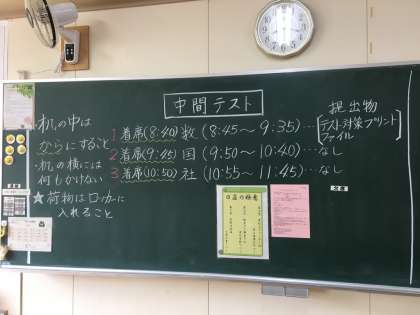 中間テスト
・机の中は
からにすること
・机の横には
何もかけない
★荷物はロッカーに
入れること
1 着席(8:40) 数 (8:45〜9:35)…
2 着席(9:45) 国 (9:50〜10:40)…なし
3 着席(10:50) 社 (10:55〜11:45)…なし
提出物
テスト対策プリント
ファイル